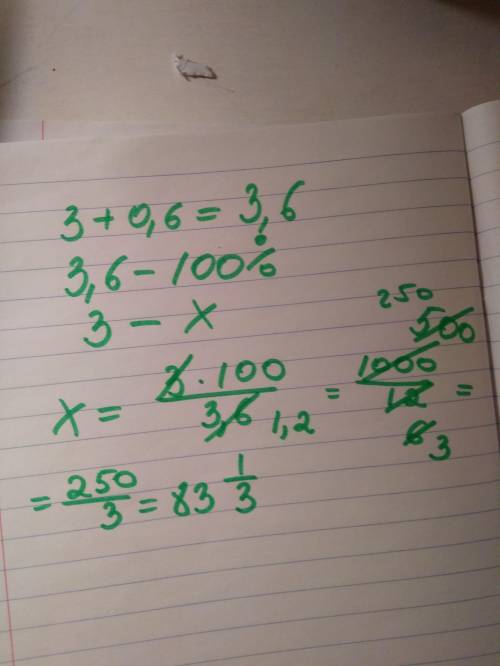 3 + 0,6 = 3,6
3,6 - 100%
3 - x
x = 3 · 100 / 3,6 1,2 = 1000 / 12 = 500 250 6 3
= 250/3 = 83 1/3